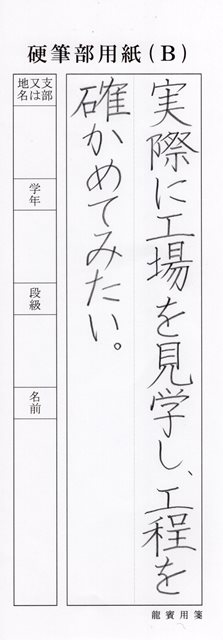 硬筆部用紙(B)
実際に工場を見学し、工程を
確かめてみたい。
支部
又は
地名
学年
段級
名前
龍賓用箋